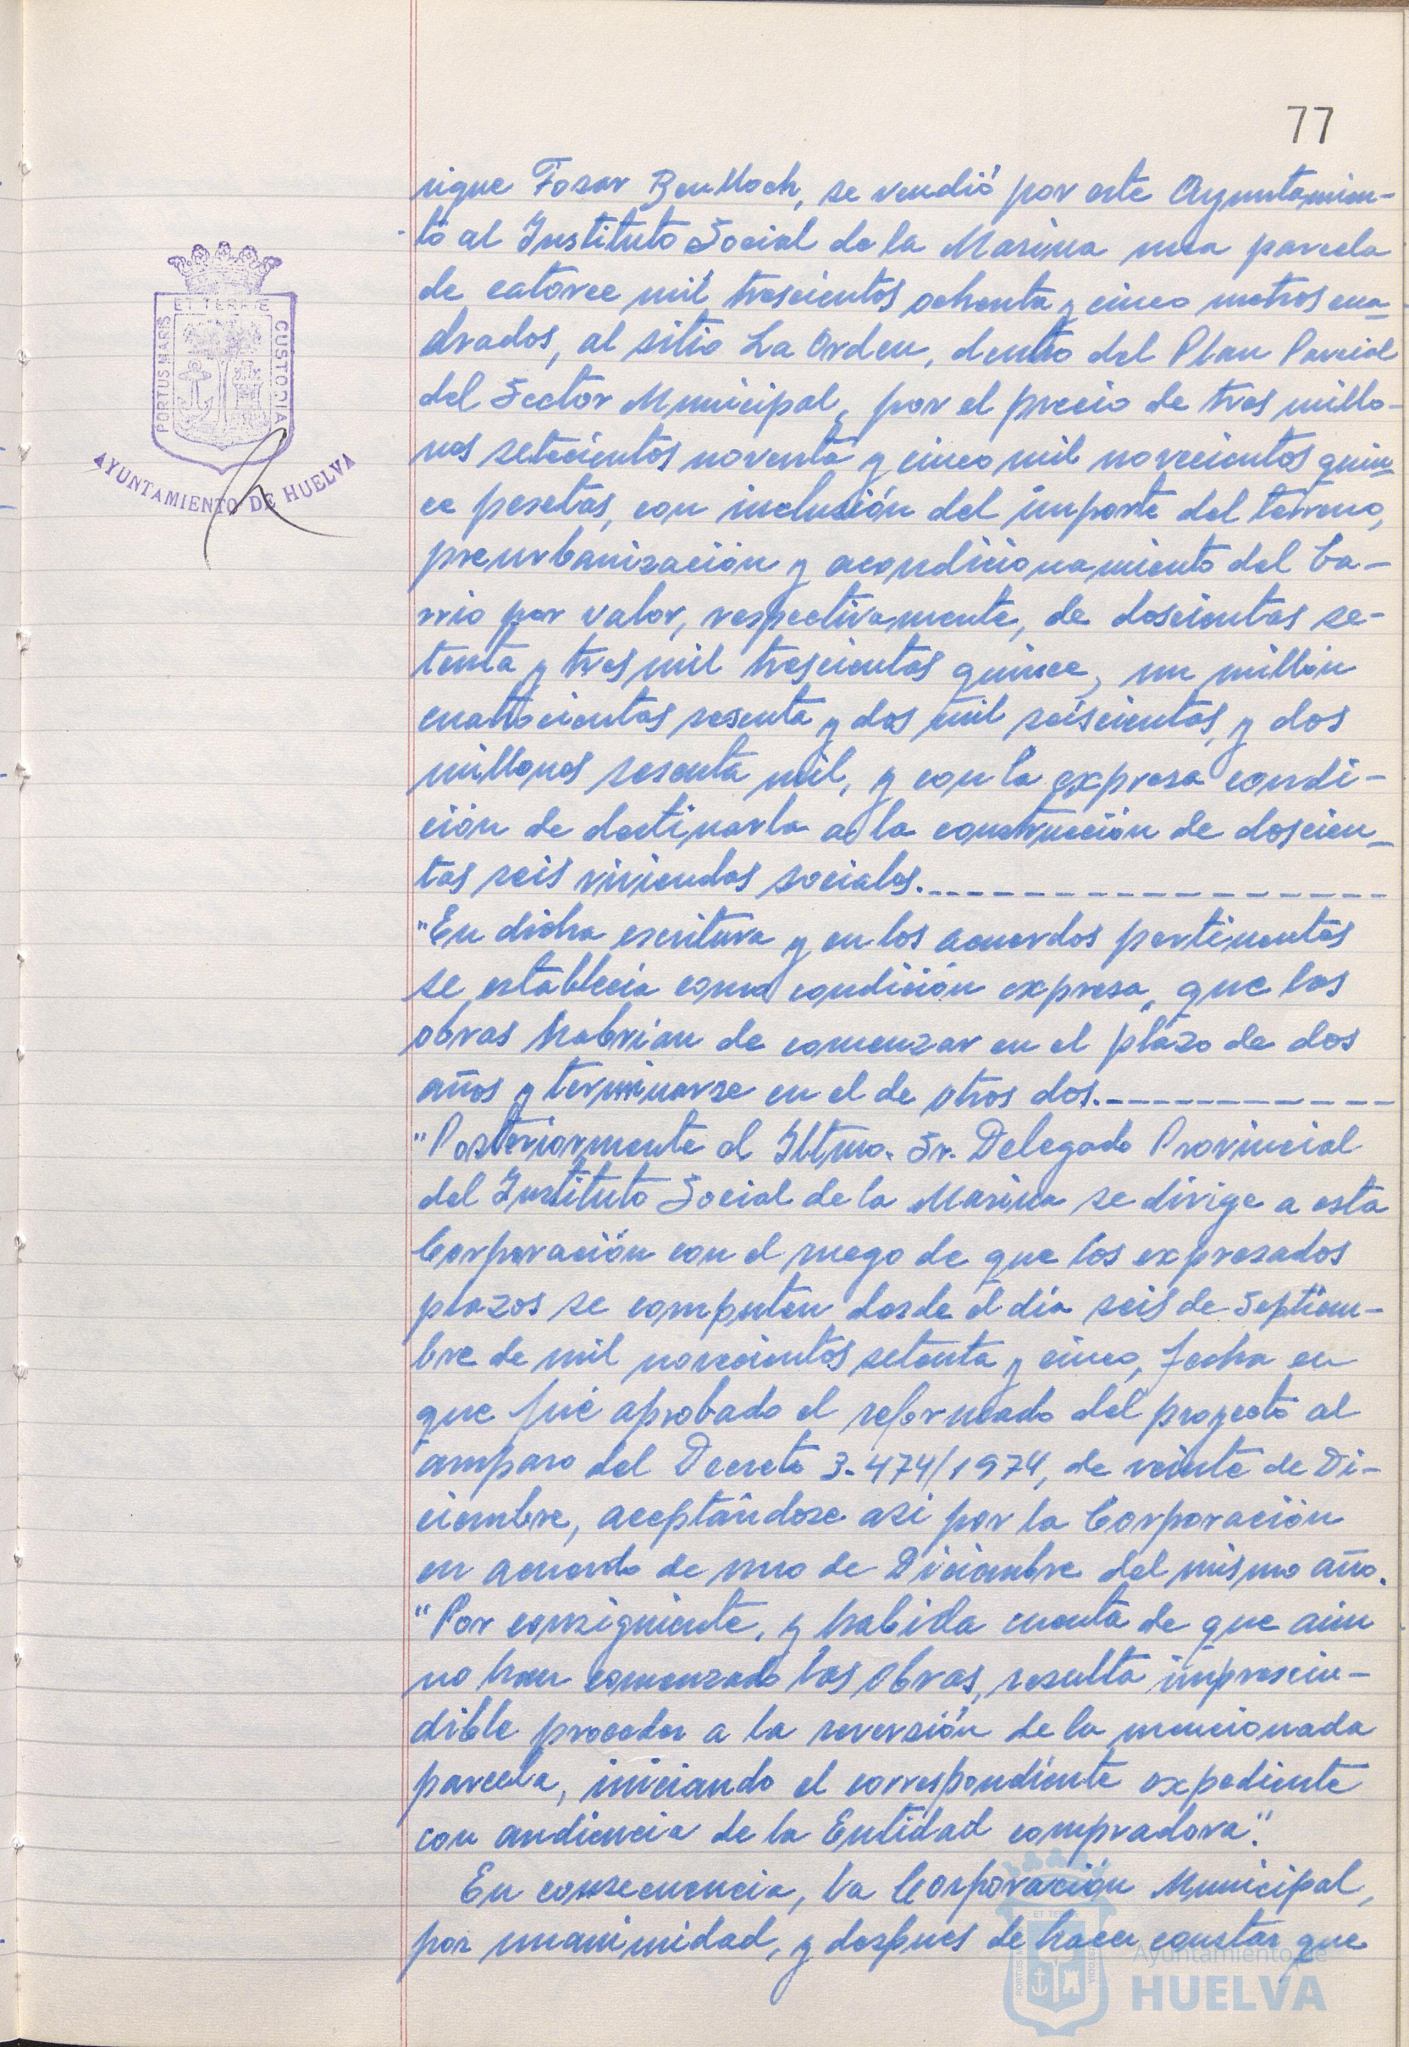 77
rique Fosar Benlloch, se vendió por este Ayuntamien-
to al Instituto Social de la Marina una parcela
de catorce mil trescientos ochenta y cinco metros cua-
drados, al sitio La Orden, dentro del Plan Parcial
del Sector Municipal, por el precio de tres millo-
nes setecientos noventa y cinco mil novecientos quin-
ce pesetas, con inclusión del importe del terreno,
preurbanización y acondicionamiento del ba-
rrio por valor, respectivamente, de doscientas se-
tenta y tres mil trescientos quince, un millón
cuatrocientas sesenta y dos mil seiscientas, y dos
millones sesenta mil, y con la expresa condi-
ción de destinarla a la construcción de doscien-
tas seis viviendas sociales.
"En dicha escritura y en los acuerdos pertinentes
se establecía como condición expresa, que las
obras habrían de comenzar en el plazo de dos
años y terminarse en el de otros dos.
"Posteriormente el Iltmo. Sr. Delegado Provincial
del Instituto Social de la Marina se dirige a esta
Corporación con el ruego de que los expresados
plazos se computen desde el día seis de Septiem-
bre de mil novecientos setenta y cinco, fecha en
que fué aprobado el reformado del proyecto al
amparo del Decreto 3.474/1974, de veinte de Di-
ciembre, aceptándose así por la Corporación
en acuerdo de uno de Diciembre del mismo año.
"Por consiguiente, y habida cuenta de que aún
no han comenzado las obras, resulta imprescin-
dible proceder a la reversión de la mencionada
parcela, iniciando el correspondiente expediente
con audiencia de la Entidad compradora".
En consecuencia, la Corporación Municipal,
por unanimidad, y despues de hacer constar que
PORTUS MARIS
ET TERRAE
CUSTODIA
AYUNTAMIENTO DE HUELVA
Ayuntamiento de
HUELVA